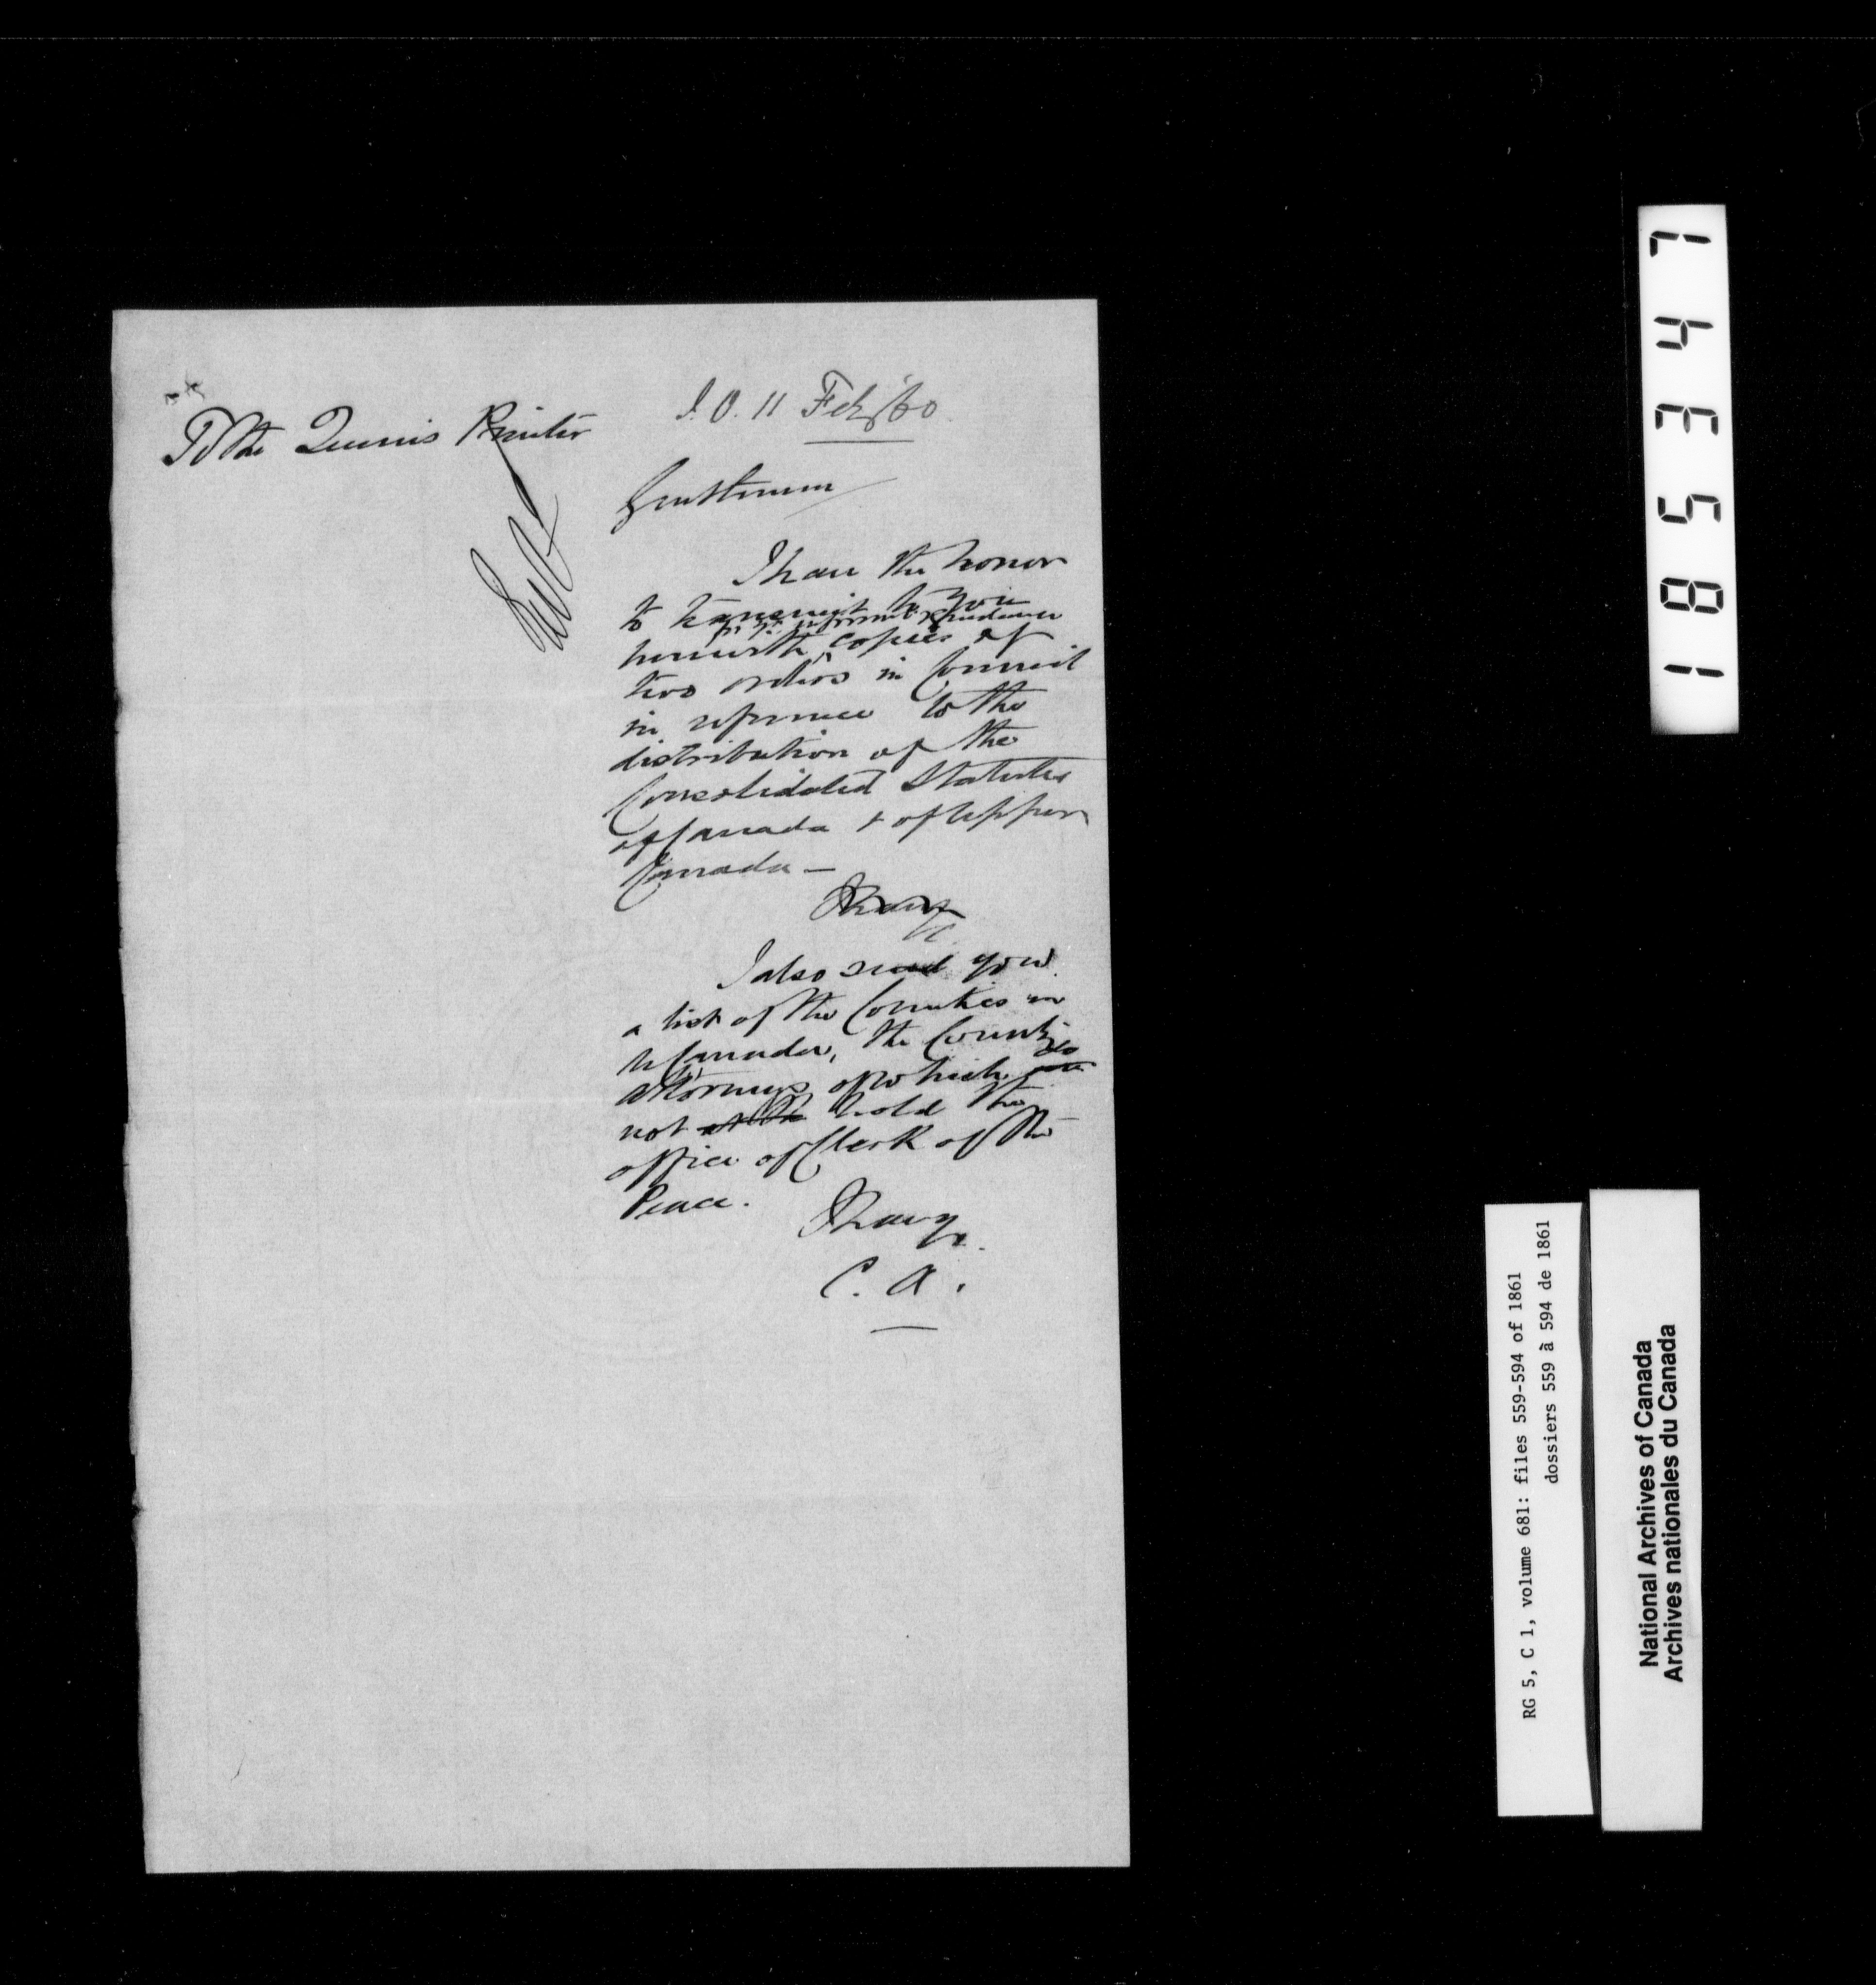 To the Queens Printer
S. O. 11 Feb/60
Gentlemen
I have the honor
to transmit to you
for yr information & guidance
herewith copies of
two orders in Council
in reference to the
distribution of the
Consolidated Statutes
of Canada & of Upper
Canada —
I have
I also send you
a list of the Counties in
U Canada, the County
attorneys of which do
not hold the
office of Clerk of the
Peace.
I have
C. A.
181534 7
RG 5, C 1, volume 681: files 559-594 of 1861
dossiers 559 à 594 de 1861
National Archives of Canada
Archives nationales du Canada